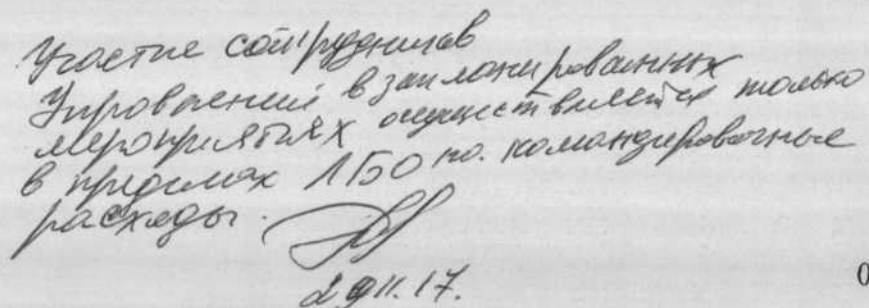 Участие сотрудников
Управлений в запланированных
мероприятиях осуществляется только
в пределах ЛБО по командировочные
расходы.
29.11.17.
0